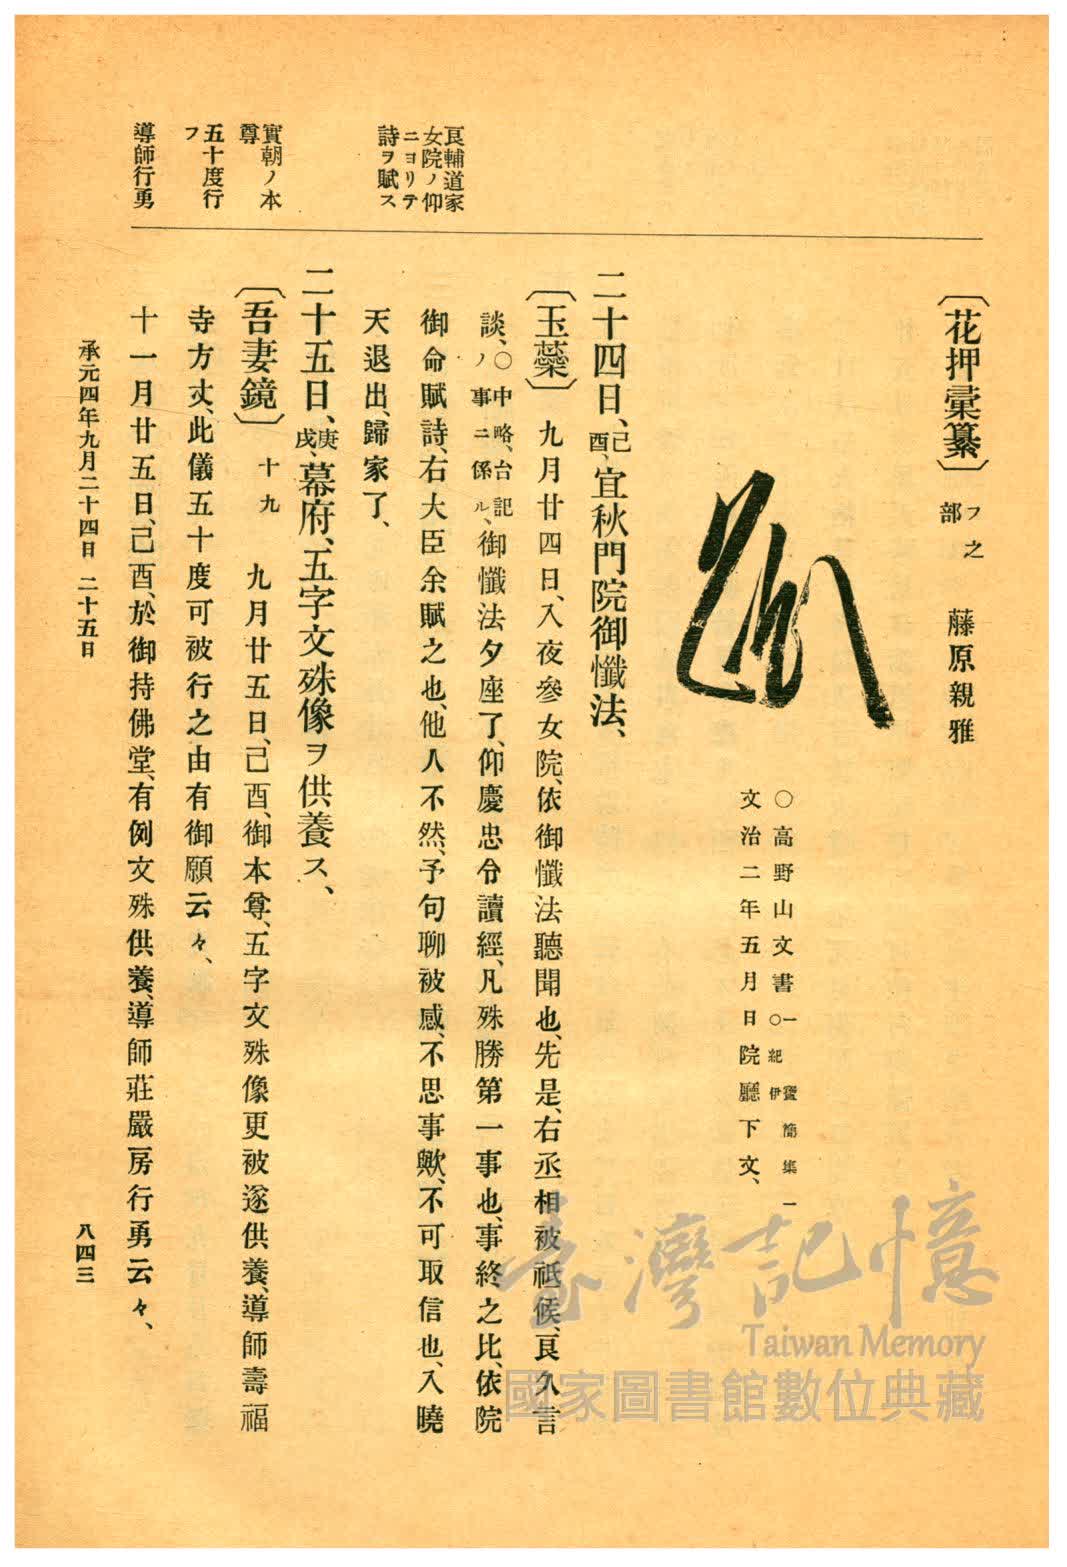 〔花押彙纂〕フ之部 藤原親雅
○高野山文書 ○紀伊 寶簡集一一
文治二年五月日院廳下文、
二十四日、己酉、宜秋門院御懺法、
〔玉蘂〕九月廿四日、入夜參女院、依御懺法聽聞也、先是、右丞相被祗候、良久言
談、○中略、台記ノ事ニ係ル、御懺法夕座了、仰慶忠令讀經、凡殊勝第一事也、事終之比、依院
御命賦詩、右大臣余賦之也、他人不然、予句聊被感、不思事歟、不可取信也、入曉
天退出、歸家了、
二十五日、庚戌、幕府、五字文殊像ヲ供養ス、
〔吾妻鏡〕十九 九月廿五日、己酉、御本尊、五字文殊像更被遂供養、導師壽福
寺方丈、此儀五十度可被行之由有御願云々、
十一月廿五日、己酉、於御持佛堂、有例文殊供養、導師莊嚴房行勇云々、
良輔道家
女院ノ仰
ニヨリテ
詩ヲ賦ス
實朝ノ本
尊
五十度行
フ
導師行勇
承元四年九月二十四日 二十五日
八四三
臺灣記憶
Taiwan Memory
國家圖書館數位典藏